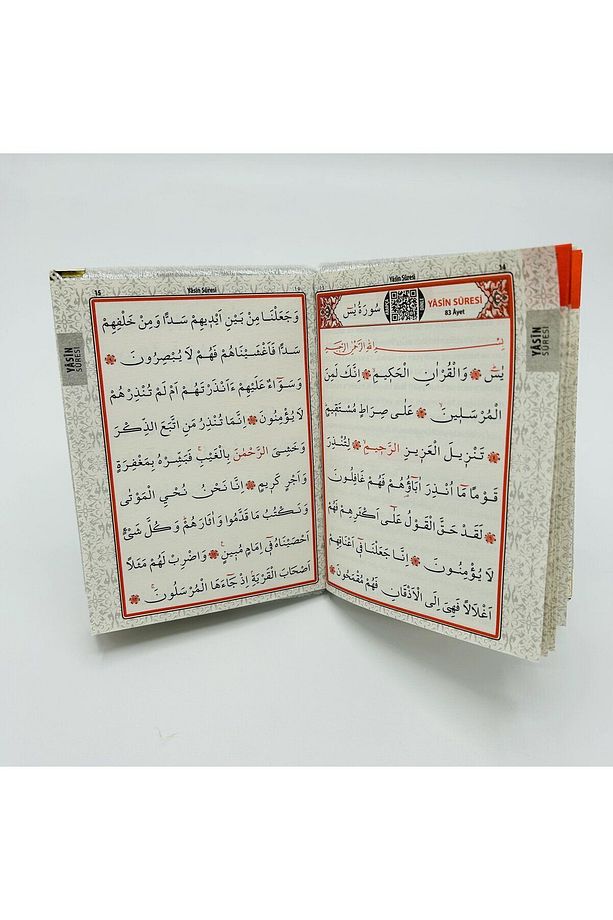 14
Yâsin Sûresi
YÂSİN SÛRESİ
83 Âyet
سُورَةُ يٰسٓ
YÂSİN
SÛRESİ
بِسْمِ اللّٰهِ الرَّحْمٰنِ الرَّحِيمِ
يٰسٓ وَالْقُرْاٰنِ الْحَكِيمِۙ اِنَّكَ لَمِنَ
الْمُرْسَلِينَۙ عَلٰى صِرَاطٍ مُسْتَقِيمٍ
تَنْزِيلَ الْعَزِيزِ الرَّحِيمِۙ لِتُنْذِرَ
قَوْمًا مَٓا اُنْذِرَ اٰبَٓاؤُ۬هُمْ فَهُمْ غَافِلُونَ
لَقَدْ حَقَّ الْقَوْلُ عَلٰٓى اَكْثَرِهِمْ فَهُمْ
لَا يُؤْمِنُونَ اِنَّا جَعَلْنَا فِٓى اَعْنَاقِهِمْ
اَغْلَالًا فَهِيَ اِلَى الْاَذْقَانِ فَهُمْ مُقْمَحُونَ
15
Yâsin Sûresi
١٥
YÂSİN
SÛRESİ
وَجَعَلْنَا مِنْ بَيْنِ اَيْدِيهِمْ سَدًّا وَمِنْ خَلْفِهِمْ
سَدًّا فَاَغْشَيْنَاهُمْ فَهُمْ لَا يُبْصِرُونَ
وَسَوَٓاءٌ عَلَيْهِمْ ءَاَنْذَرْتَهُمْ اَمْ لَمْ تُنْذِرْهُمْ
لَا يُؤْمِنُونَ اِنَّمَا تُنْذِرُ مَنِ اتَّبَعَ الذِّكْرَ
وَخَشِيَ الرَّحْمٰنَ بِالْغَيْبِۚ فَبَشِّرْهُ بِمَغْفِرَةٍ
وَاَجْرٍ كَرِيمٍ اِنَّا نَحْنُ نُحْيِ الْمَوْتٰى
وَنَكْتُبُ مَا قَدَّمُوا وَاٰثَارَهُمْۜ وَكُلَّ شَيْءٍ
اَحْصَيْنَاهُ فِٓى اِمَامٍ مُبِينٍ۟ وَاضْرِبْ لَهُمْ مَثَلًا
اَصْحَابَ الْقَرْيَةِۢ اِذْ جَٓاءَهَا الْمُرْسَلُونَۚ